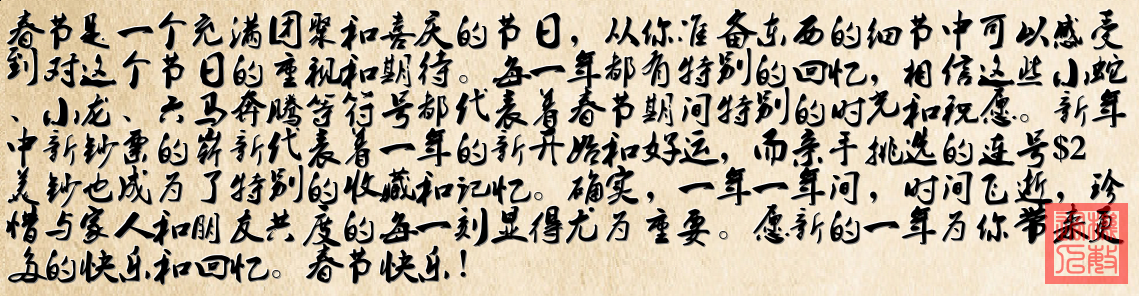 春节是一个充满团聚和喜庆的节日，从你准备东西的细节中可以感受
到对这个节日的重视和期待。每一年都有特别的回忆，相信这些小蛇
、小龙、六马奔腾等符号都代表着春节期间特别的时光和祝愿。新年
中新钞票的崭新代表着一年的新开始和好运，而亲手挑选的连号$2
美钞也成为了特别的收藏和记忆。确实，一年一年间，时间飞逝，珍
惜与家人和朋友共度的每一刻显得尤为重要。愿新的一年为你带来更
多的快乐和回忆。春节快乐！